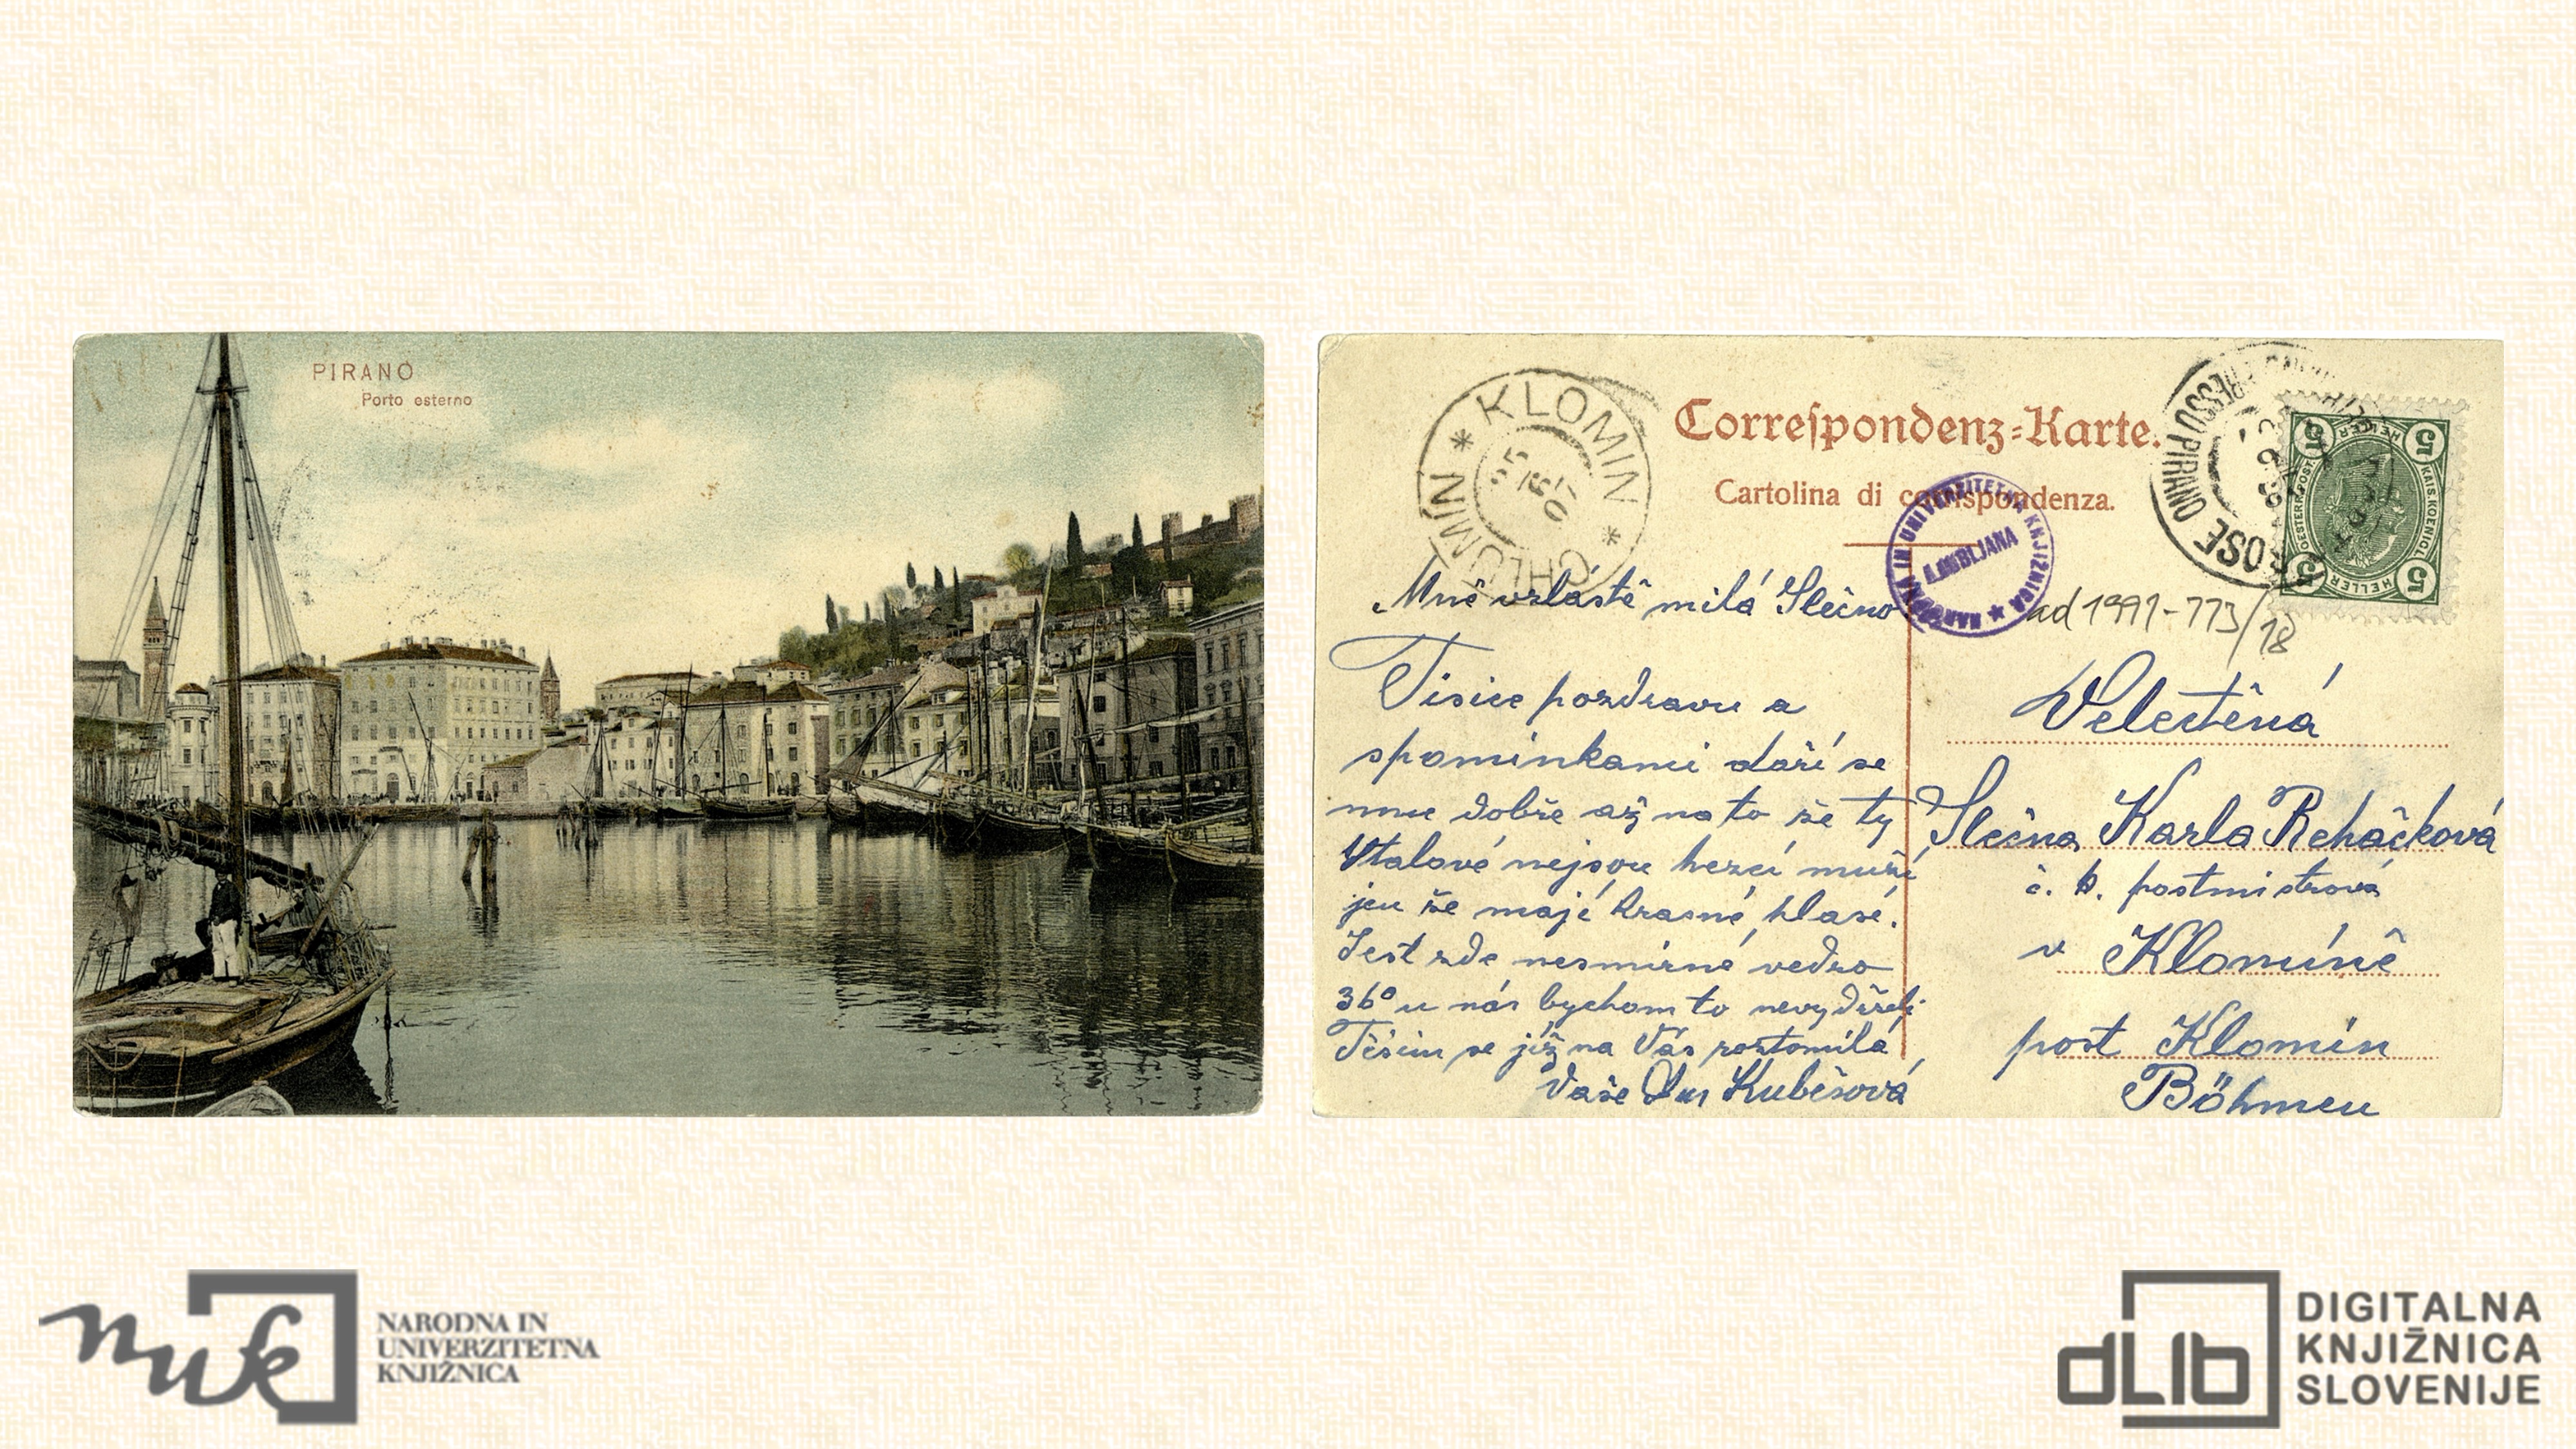 PIRANO
Porto esterno
KLOMIN * CHLUMÍN *
Correspondenz-Karte.
Cartolina di corrispondenza.
NARODNA IN UNIVERZITETNA KNJIŽNICA ★
LJUBLJANA
5 5
HELLER
KAIS. KOENIGL.
OESTERR. POST.
5 HELLER 5
ad 1991-773/18
Mně vzláště milá Slečno
Tisice pozdravu a
spominkami daří se
mne dobře až na to že ty
Vtalové nejsou hezcí muži
jen že mají krasné hlasi.
Jest zde nesmirné vedro
36° u nás bychom to nevydrželi
Těšim se již na Vás roztomilá
Vaše Kubešová
Velectěná
Slečna Karla Rehačková
c. k. postmistrová
v Klomíně
post Klomín
Böhmen
nuk
NARODNA IN
UNIVERZITETNA
KNJIŽNICA
dLib
DIGITALNA
KNJIŽNICA
SLOVENIJE